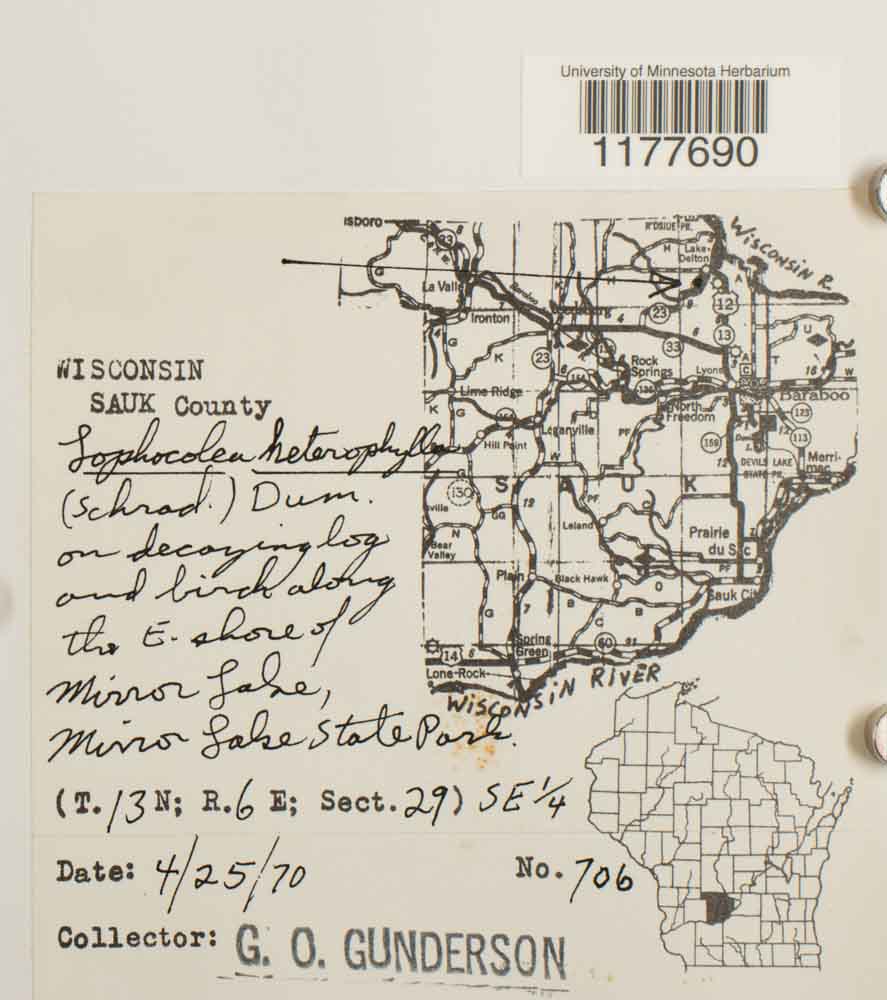 University of Minnesota Herbarium
1177690
WISCONSIN
SAUK County
Lophocolea heterophylla
(Schrad.) Dum.
on decaying log
and birch along
the E. shore of
Mirror Lake,
Mirror Lake State Park.
(T. 13 N; R. 6 E; Sect. 29) SE 1/4
Date: 4/25/70
No. 706
Collector: G. O. GUNDERSON
isboro
R'DSIDE PK.
WISCONSIN R.
Lake Delton
La Valle
Ironton
Rock Springs
Lyons
Baraboo
Lime Ridge
North Freedom
Loganville
Hill Point
DEVILS LAKE STATE PK.
Merri-mac
SAUK
Leland
Prairie du Sac
Bear Valley
Plain
Black Hawk
Sauk City
Spring Green
Lone Rock
WISCONSIN RIVER